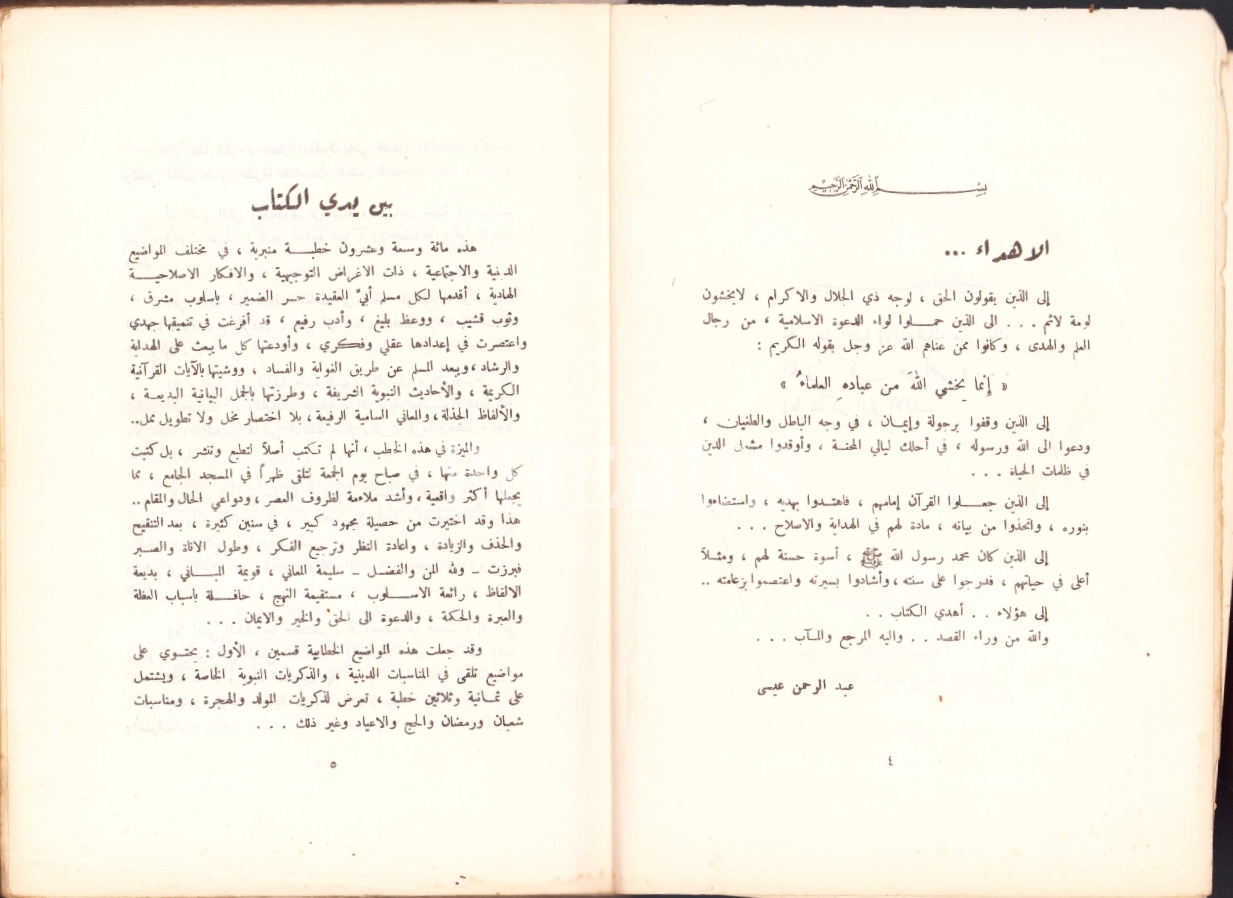 بسم الله الرحمن الرحيم
الاهداء ...
إلى الذين يقولون الحق ، لوجه ذي الجلال والاكرام ، لايخشون
لومة لائم . . . الى الذين حمـــلوا لواء الدعوة الاسلامية ، من رجال
العلم والهدى ، وكانوا ممن عناهم الله عز وجل بقوله الكريم :
« إنما يخشى اللهَ من عبادهِ العلماءُ »
إلى الذين وقفوا برجولة وإيمـــان ، في وجه الباطل والطغيان ،
ودعوا الى الله ورسوله ، في أحلك ليالي المحنـــة ، وأوقدوا مشعل الدين
في ظلمات الحياة . . .
إلى الذين جعـــلوا القرآن إمامهم ، فاهتـــدوا بهديه ، واستضاءوا
بنوره ، واتخذوا من بيانه ، مادة لهم في الهداية والاصلاح . . .
إلى الذين كان محمد رسول الله ﷺ ، أسوة حسنة لهم ، ومثـــلاً
أعلى في حياتهم ، فدرجوا على سنته ، وأشادوا بسيرته واعتصموا بزعامته . .
إلى هؤلاء . . أهدي الكتاب . .
والله من وراء القصد . . واليه المرجع والمـآب . . .
عبد الرحمن عيسى
٤
بين يدي الكتاب
هذه مائة وسبعة وعشرون خطبـــة منبرية ، في مختلف المواضيع
الدينية والاجتماعية ، ذات الاغراض التوجيهية ، والافكار الاصلاحيـــة
الهادية ، أقدمها لكل مسلم أبيِّ العقيدة حـــر الضمير ، باسلوب مشرق ،
وثوب قشيب ، ووعظ بليغ ، وأدب رفيع ، قد أفرغت في تنميقها جهدي
واعتصرت في إعدادها عقلي وفكري ، وأودعتها كل ما يبعث على الهداية
والرشاد ، ويبعد المسلم عن طريق الغواية والفساد ، ووشيتها بالآيات القرآنية
الكريمة ، والأحاديث النبوية الشريفة ، وطرزتها بالجمل البيانية البديعـــة ،
والألفاظ الجذلة ، والمعاني السامية الرفيعة ، بلا اختصار مخل ولا تطويل ممل..
والميزة في هذه الخطب ، أنها لم تكتب أصلاً لتطبع وتنشر ، بل كتبت
كل واحدة منها ، في صباح يوم الجمعة لتلقى ظهراً في المسجد الجامع ، مما
يجعلها أكثر واقعية ، وأشد ملاءمة لظروف العصر ، ودواعي الحال والمقام ..
هذا وقد اختيرت من حصيلة مجهود كبير ، في سنين كثيرة ، بعد التنقيح
والحذف والزيادة ، واعادة النظر وترجيع الفكر ، وطول الاناة والصـــبر
فبرزت ــ ولله المن والفضـــل ــ سليمة المعاني ، قويمة المبـــاني ، بديعة
الالفاظ ، رائعة الاســـلوب ، مستقيمة النهج ، حافـــلة باسباب العظة
والعبرة والحكمة ، والدعوة الى الحق والخير والايمان . . .
وقد جعلت هذه المواضيع الخطابية قسمين ، الأول : يحتـــوي على
مواضيع تلقى في المناسبات الدينية ، والذكريات النبوية الخاصة ، ويشتمل
على ثمـــانية وثلاثين خطبة ، تعرض لذكريات المولد والهجرة ، ومناسبات
شعبان ورمضان والحج والاعياد وغير ذلك . . .
٥